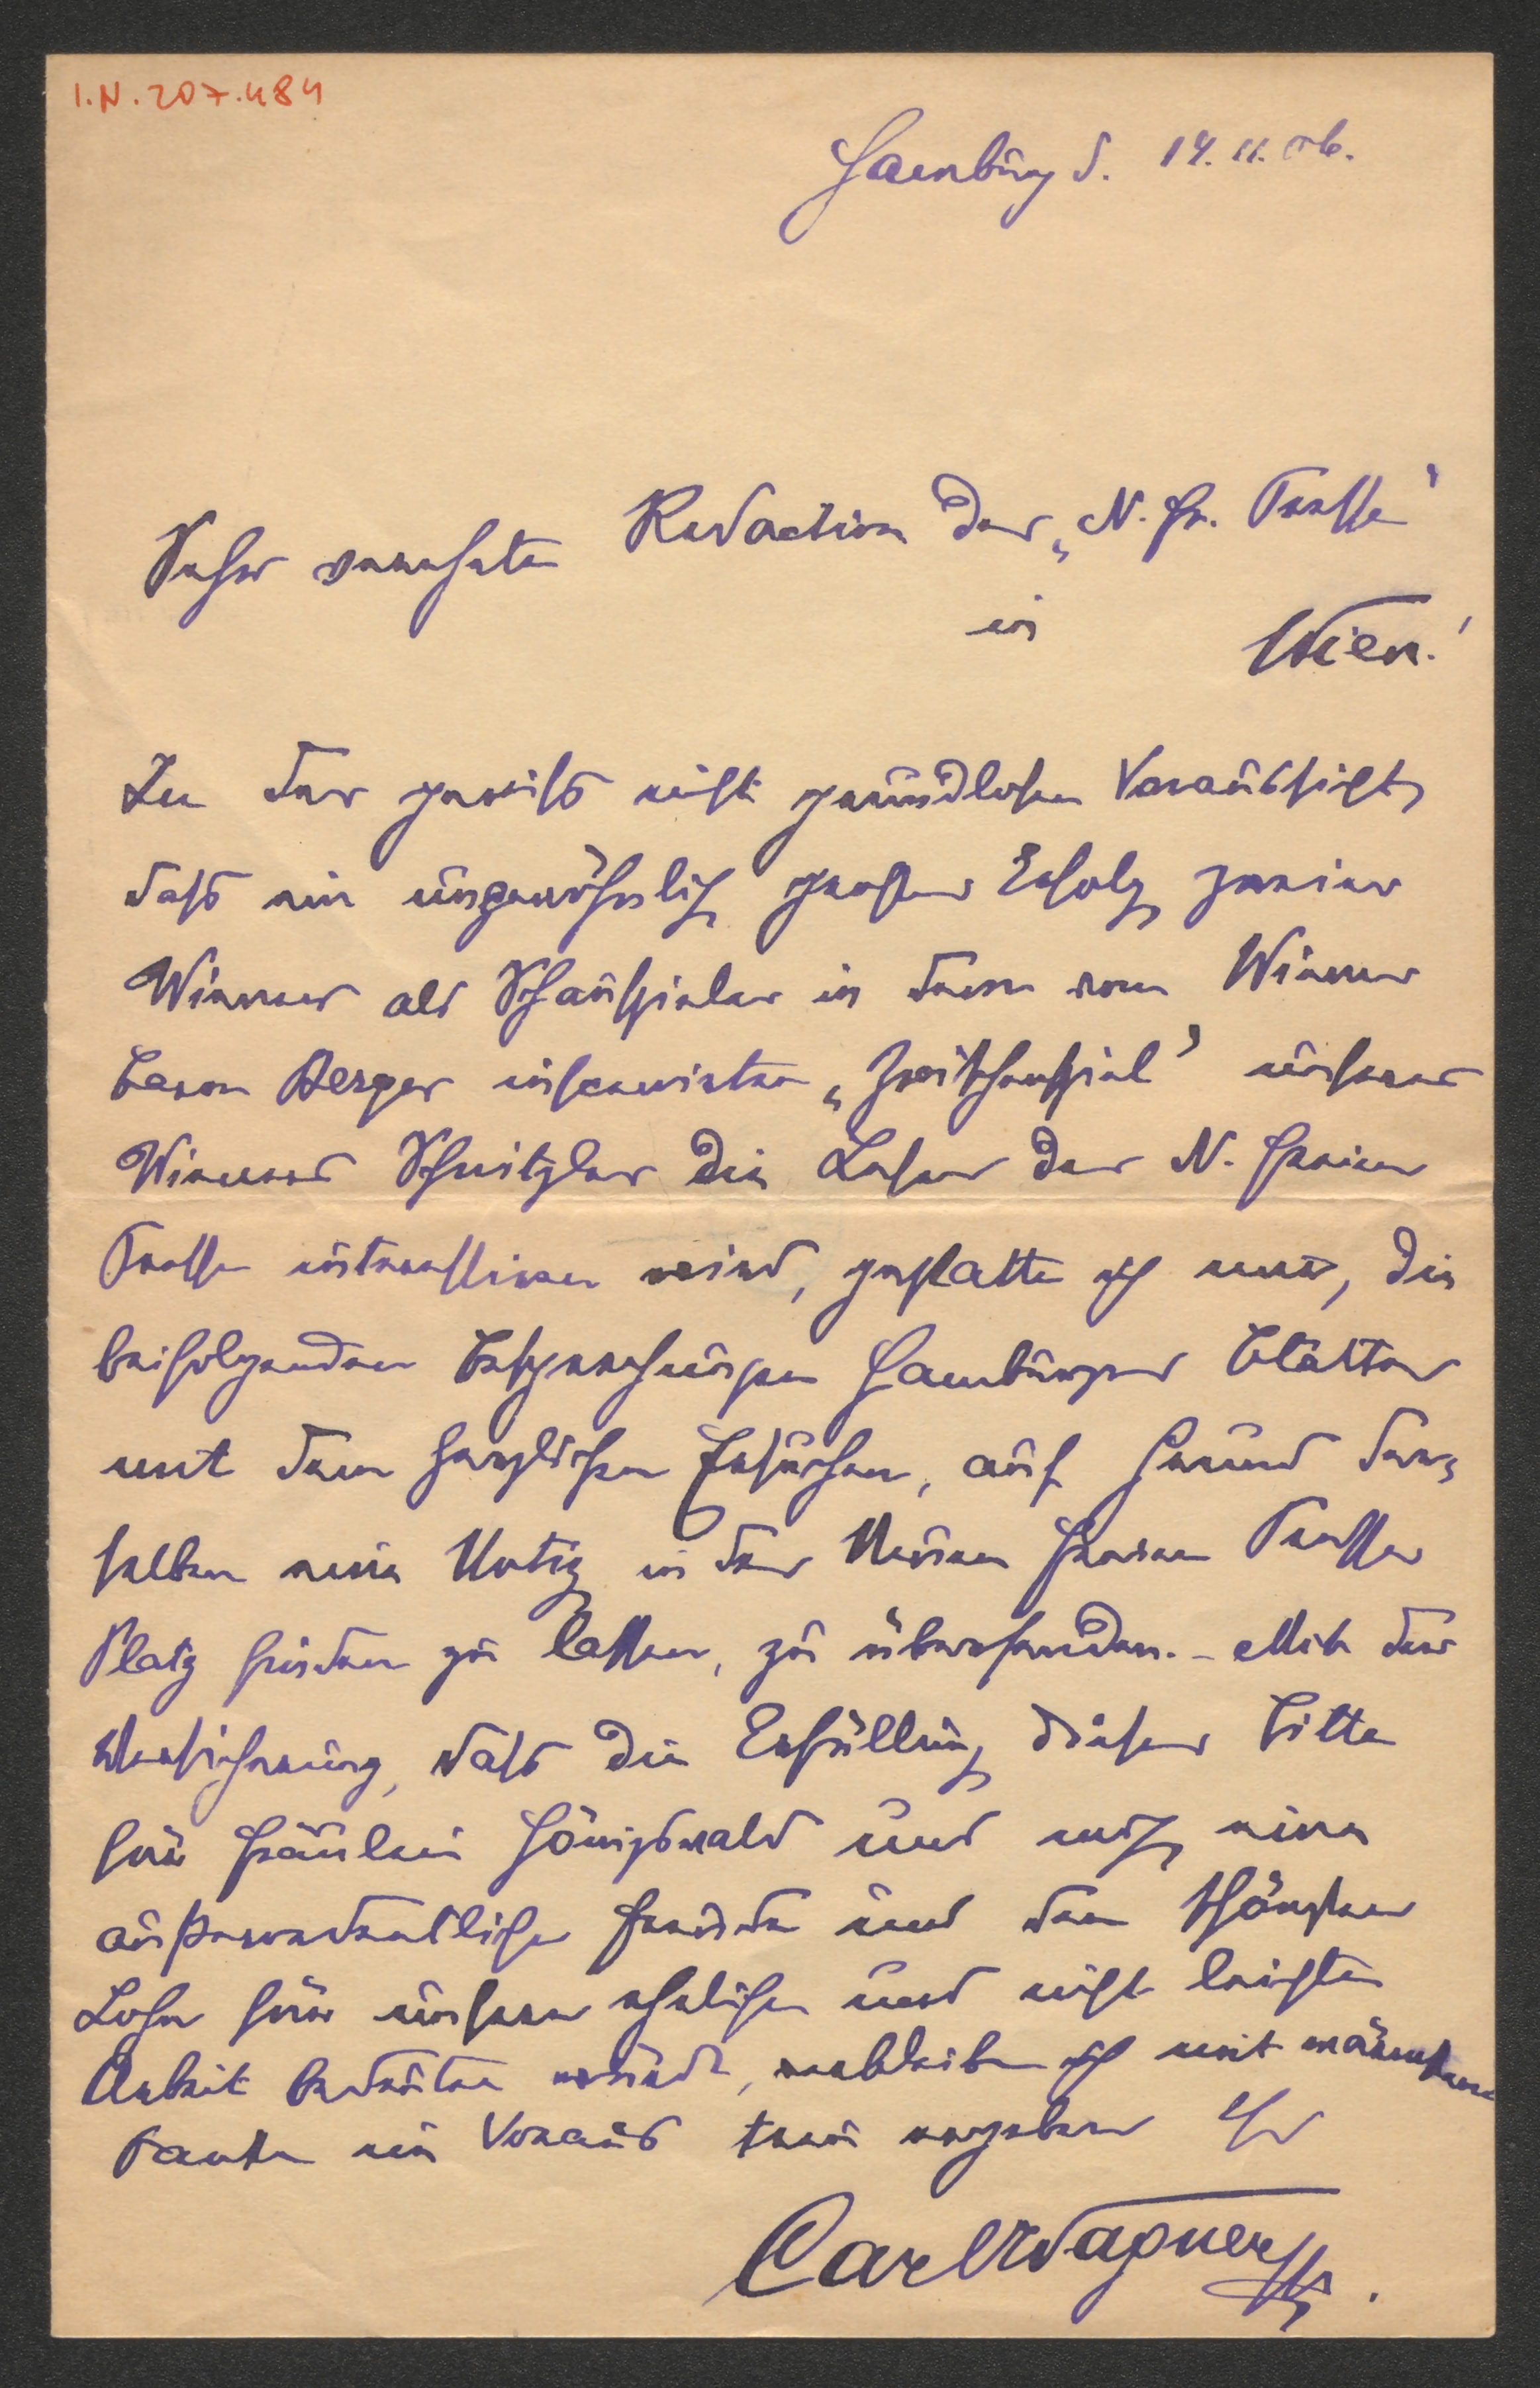 I.N. 207.484
Hamburg d. 14.11.06.
Sehr verehrte Redaction der „N. Fr. Presse“
in
Wien!
In der gewiss nicht grundlosen Voraussicht,
dass ein ungewöhnlich grosser Erfolg zweier
Wiener als Schauspieler in dem vom Wiener
Baron Berger inscenirten „Zwischenspiel“ unseres
Wieners Schnitzler die Leser der N. Freien
Presse interessieren wird, gestatte ich mir, die
beifolgenden Besprechungen Hamburger Blätter
mit dem herzlichen Ersuchen, auf Grund der-
selben eine Notiz in der Neuen Freien Presse
Platz finden zu lassen, zu übersenden. - Mit der
Versicherung, dass die Erfüllung dieser Bitte
für Fräulein Hönigswald und mich eine
außerordentliche Freude und den schönsten
Lohn für unsere ehrliche und nicht leichte
Arbeit bedeuten würde, verbleibe ich mit wärmstem
Danke im Voraus treu ergeben Ihr
Carl Wagner